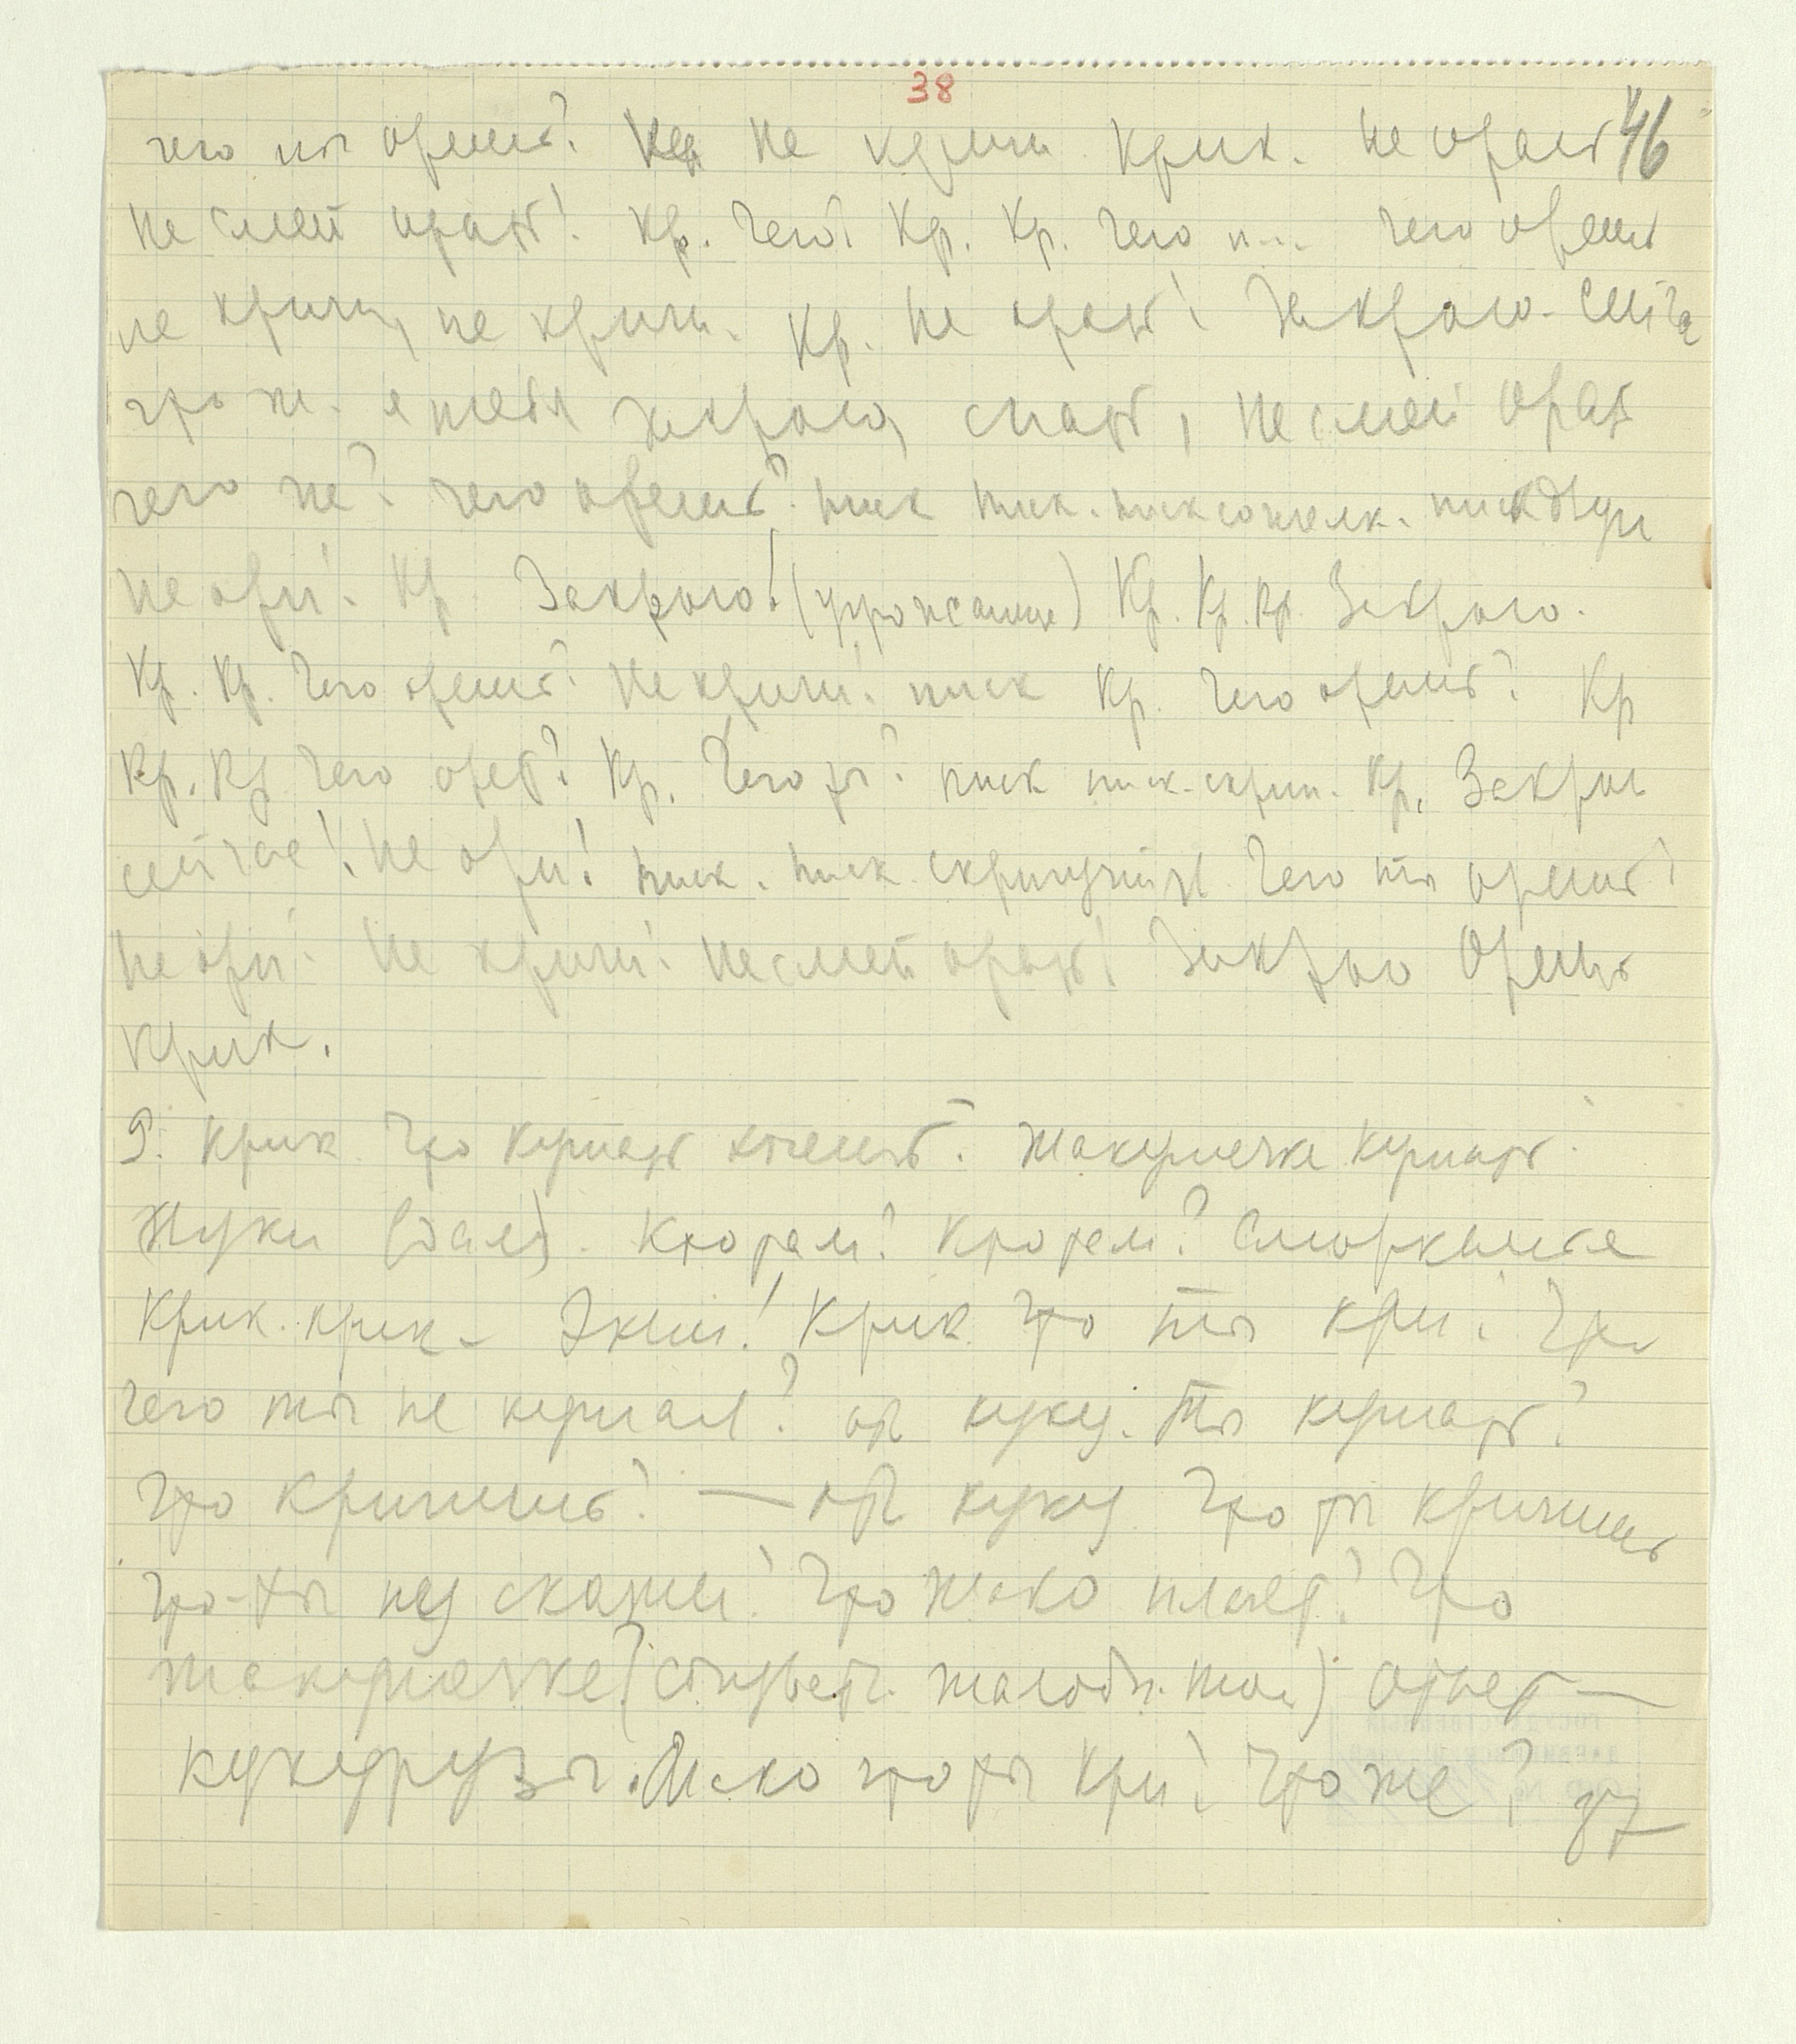 38
46
чего ты орешь? Не кричи Крик. Не орать
Не смей орать! Кр. Чего? Кр. Кр. Чего чего орешь
не кричи, не кричи. Кр. Не орать! Закрою. Сейча
что ж. я тебя закрою, спать, Не смей орат
чего не? чего орешь? писк писк. писк двери
Не ори! Кр Закрою! (угрожающе) Кр. Кр. Кр. Закрою.
Кр. Кр. Чего орешь? Не кричи! писк Кр. Чего орешь? Кр
Кр. Кр Чего орет? Кр. Чего ты? писк писк-скрип. Кр. Закрою
сейчас! Не ори! писк. писк. Чего ты орешь?
Не ори! Не кричи! Не смей орать! Закрою Орешь
Крик.
9. Крик Что кушать хочешь? Жакушечка кушать.
Стуки (вдали). Кто там? Кто там? Сморканье
Крик. крик- Экий! Крик Что ты кри? Что
Чего ты не кушал? куку. Ты кушать?
Что кричишь? — куку Что ты кричишь
Что-ты ну скажи! Что Жако плачет? Что
жакушечка? (жалобн. тон) Ответ —
кукурузы. Жако что ты Кри? Что же?